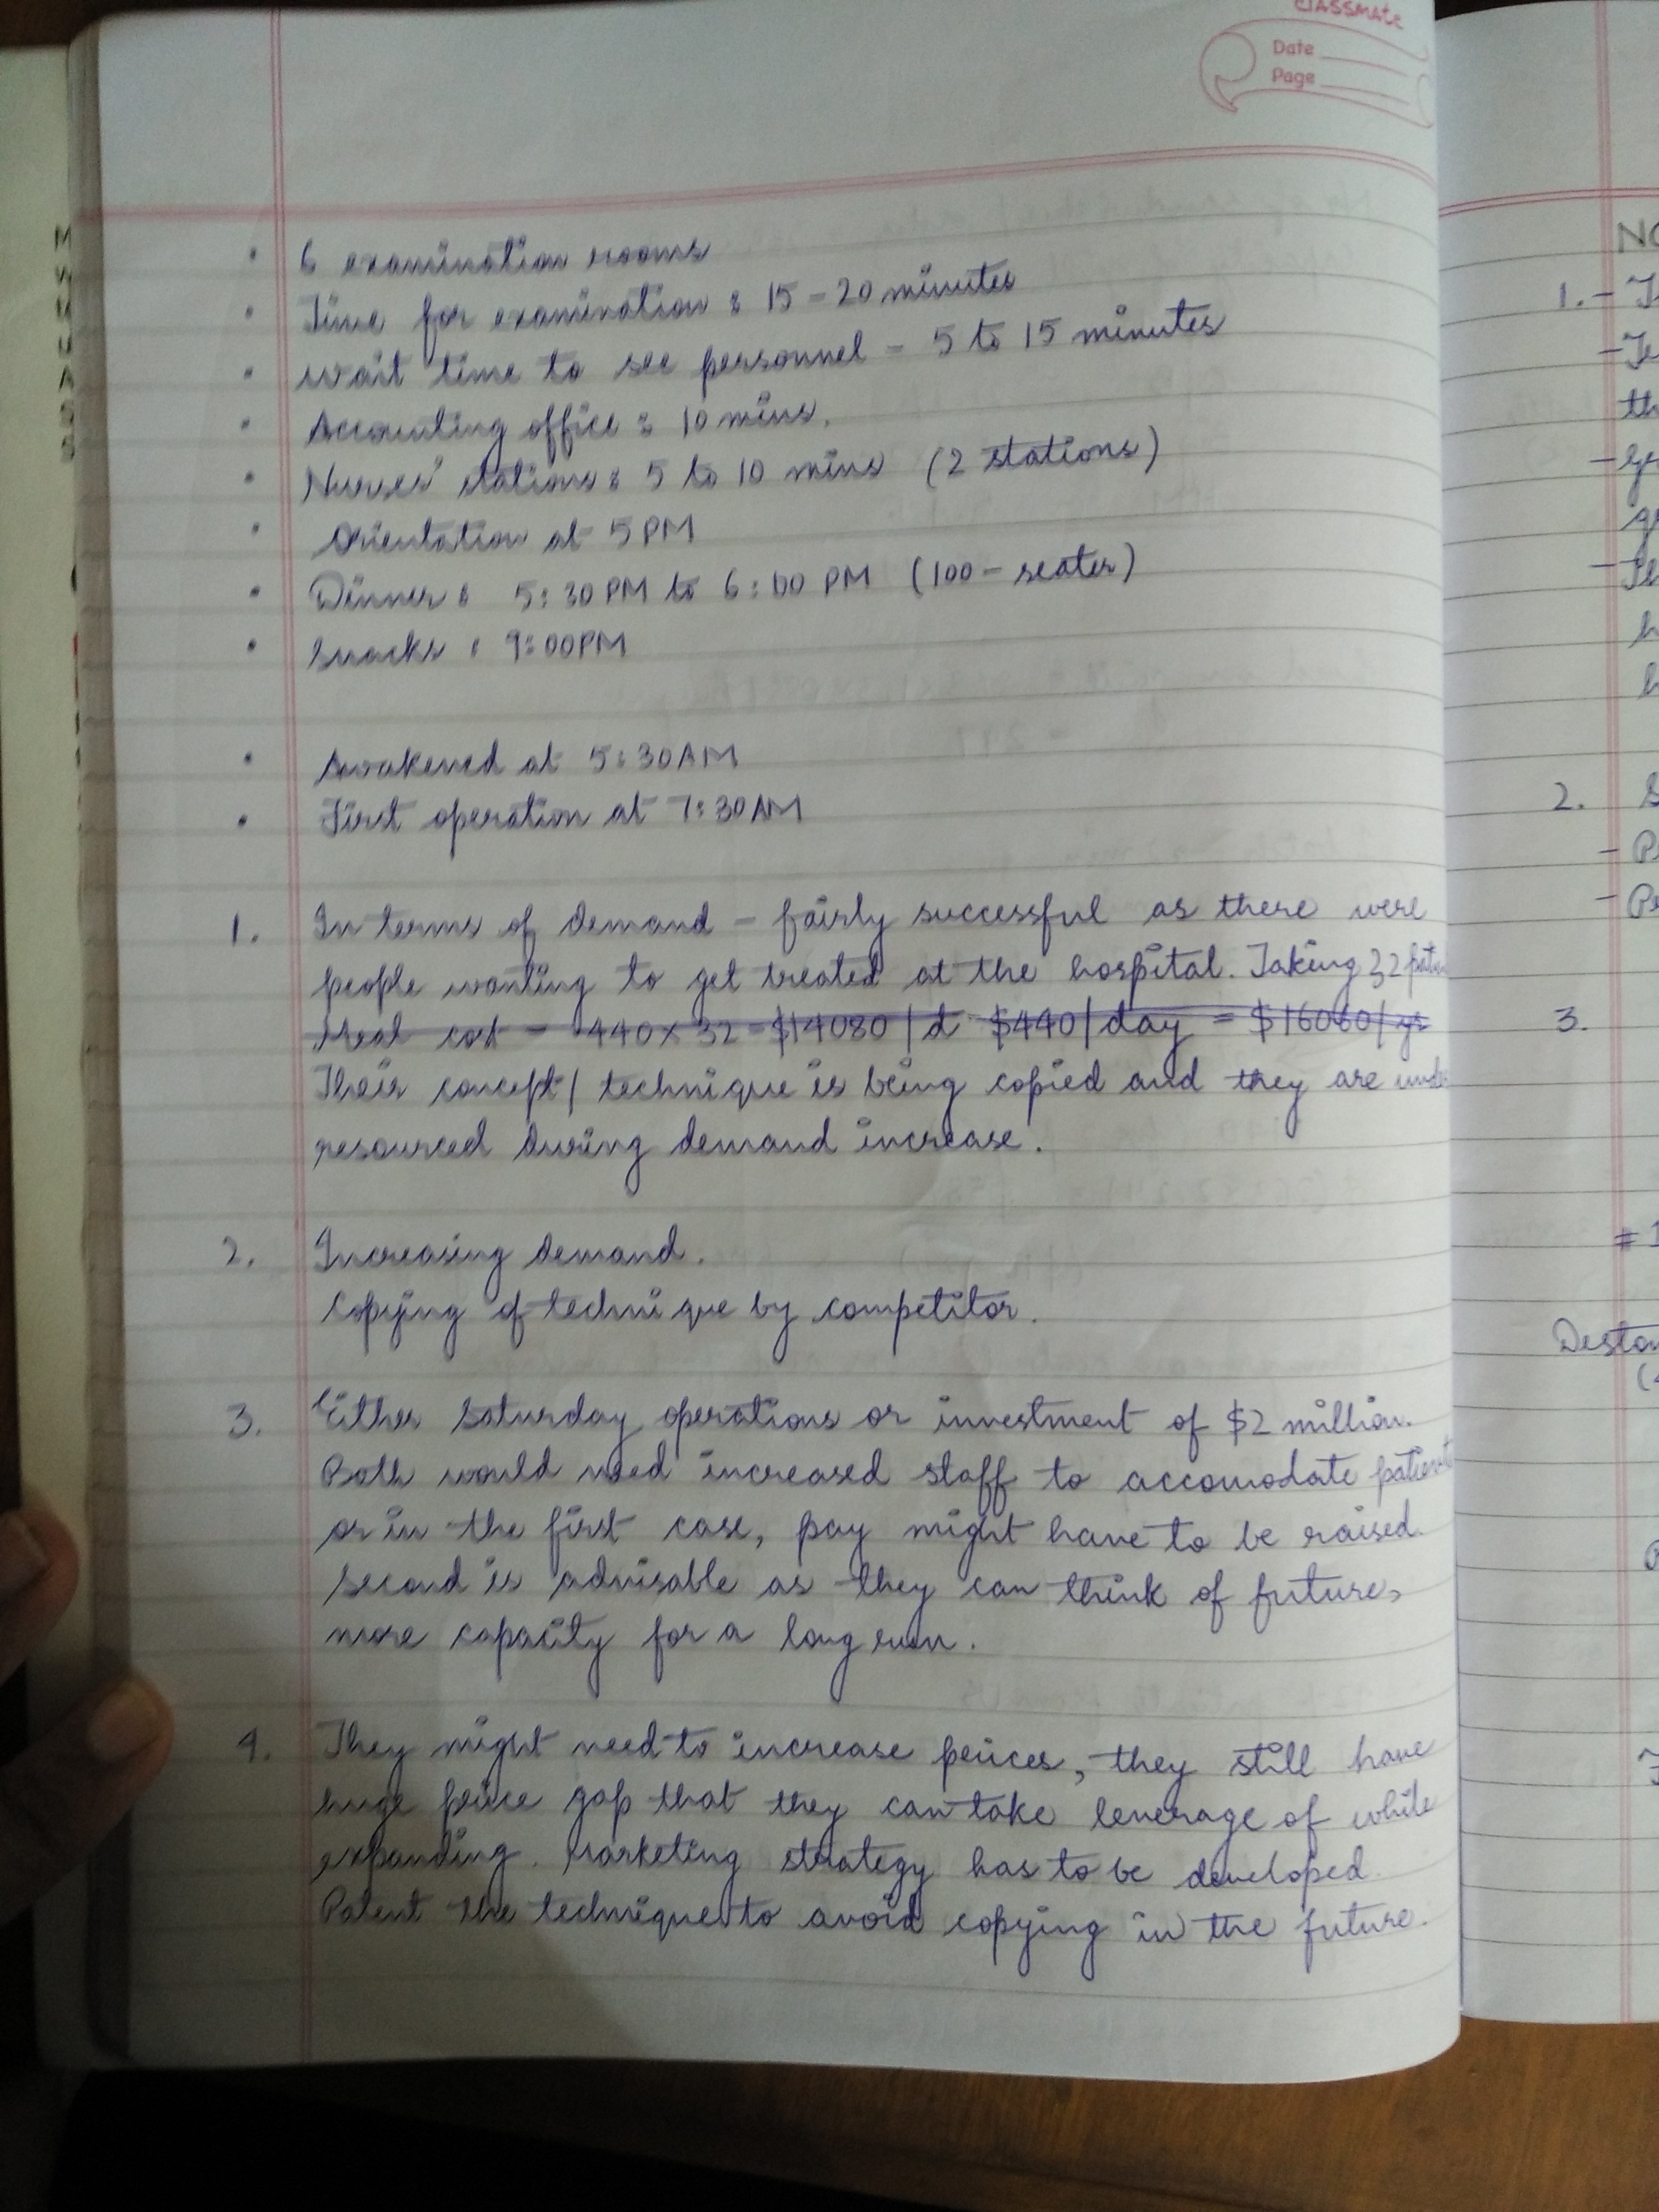 classmate
Date
Page
• 6 examination rooms
• Time for examination : 15 - 20 minutes
• Wait time to see personnel - 5 to 15 minutes
• Accounting office : 10 mins.
• Nurses' stations : 5 to 10 mins (2 stations)
• Orientation at 5 PM
• Dinner : 5:30 PM to 6:00 PM (100 - seater)
• Snacks : 9:00 PM
• Awakened at 5:30 AM
• First operation at 7:30 AM
1. In terms of demand - fairly successful as there were
people wanting to get treated at the hospital. Taking 32
Meal cost - 440 x 32 = $14080 / d $440 / day = $16060 / yr
Their concept / technique is being copied and they are under
resourced during demand increase.
2. Increasing demand.
Copying of technique by competitor.
3. Either Saturday operations or investment of $2 million.
Both would need increased staff to accomodate patients
or in the first case, pay might have to be raised.
Second is advisable as they can think of future,
more capacity for a long run.
4. They might need to increase prices, they still have
huge price gap that they can take leverage of while
expanding. Marketing strategy has to be developed.
Patent the technique to avoid copying in the future.
1. -
2.
3.